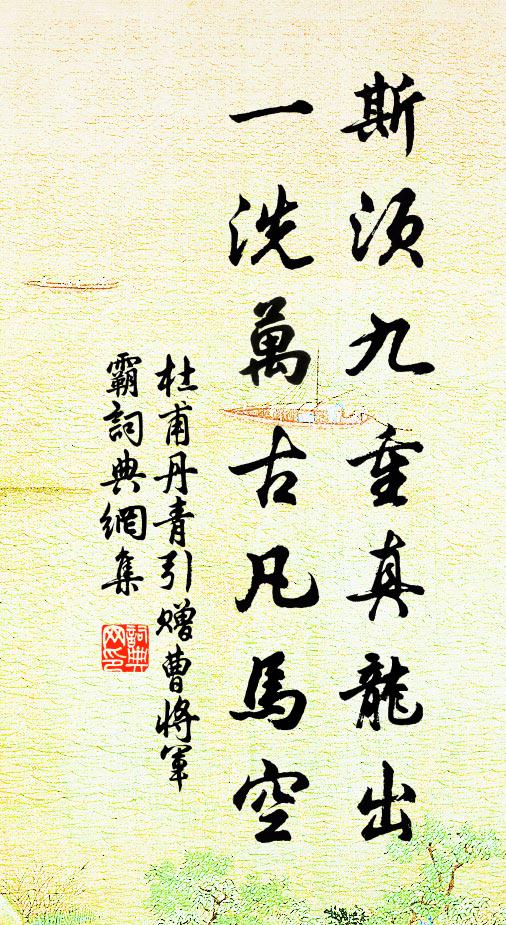 斯須九重真龍出
一洗萬古凡馬空
杜甫丹青引贈曹將軍
霸詞典網集
詞典
网印